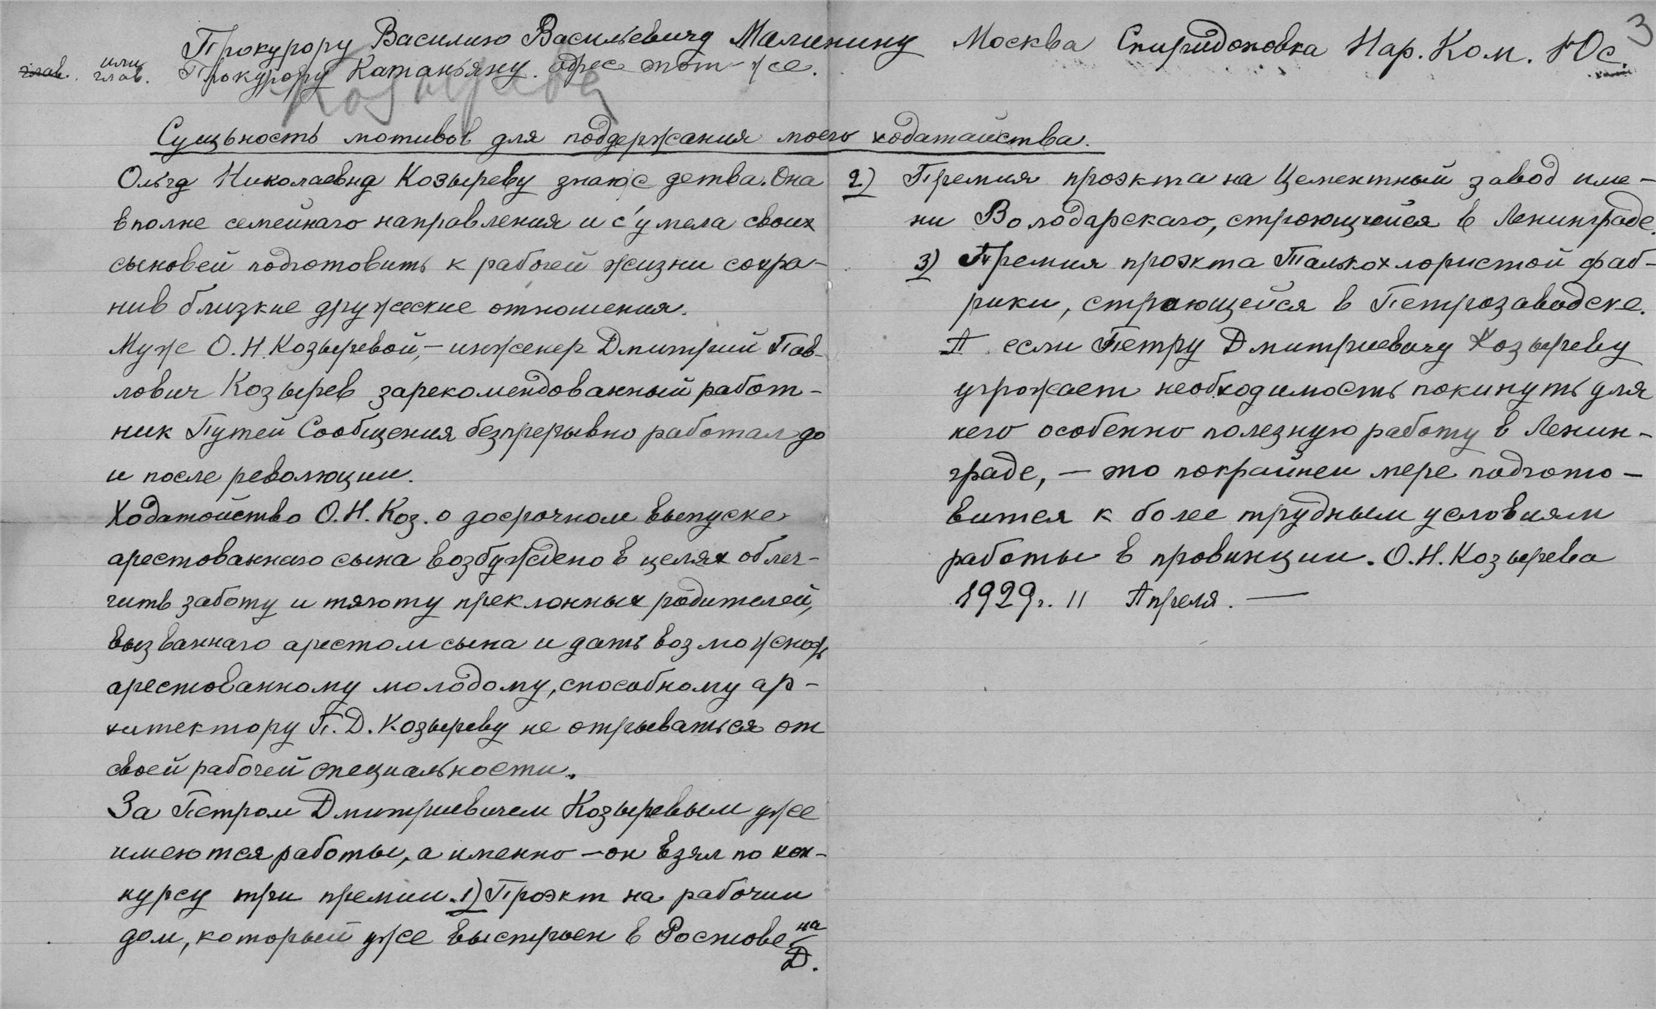 3
Прокурору Василию Васильевичу Малинину Москва Спиридоновка Нар. Ком. Юс.
глав. или глав. Прокурору Катаньяну. адрес тот-же.
Козырева
Сущьность мотивов для поддержания моего ходатайства.
Ольгу Николаевну Козыреву знаю с детва. Она
вполне семейнаго направления и с'умела своих
сыновей подготовить к рабочей жизни сохра-
нив близкие дружеские отношения.
Муж О.Н. Козыревой, – инженер Дмитрий Пав-
лович Козырев зарекомендованный работ-
ник Путей Сообщения безпрерывно работал до
и после революции.
Ходатойство О.Н. Коз. о досрочном выпуске
арестованнаго сына возбуждено в целях облег-
чить заботу и тяготу преклонных родителей,
вызваннаго арестом сына и дать возможность
арестованному молодому, способному ар-
хитектору П.Д. Козыреву не отрываться от
своей рабочей специальности.
За Петром Дмитриевичем Козыревым уже
имеются работы, а именно – он взял по кон-
курсу три премии. 1) Проэкт на рабочии
дом, который уже выстроен в Ростове на
Д.
2) Премия проэкта на Цементный завод име-
ни Володарскаго, строющийся в Ленинграде.
3) Премия проэкта Талькохлористой фаб-
рики, строющейся в Петрозаводске.
А если Петру Дмитриевичу Козыреву
угрожает необходимость покинуть для
него особенно полезную работу в Ленин-
граде, – то покрайнеи мере подгото-
вится к более трудным условиям
работы в провинции. О.Н. Козырева
1929 г. 11 Апреля. —